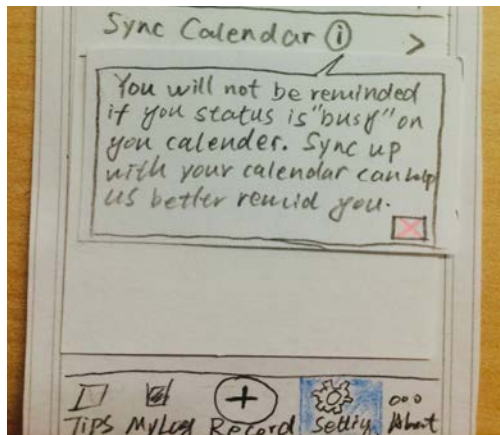 Sync Calendar i >
You will not be reminded
if you status is "busy" on
you calender. Sync up
with your calendar can help
us better remid you.
Tips My Log Record Settig About